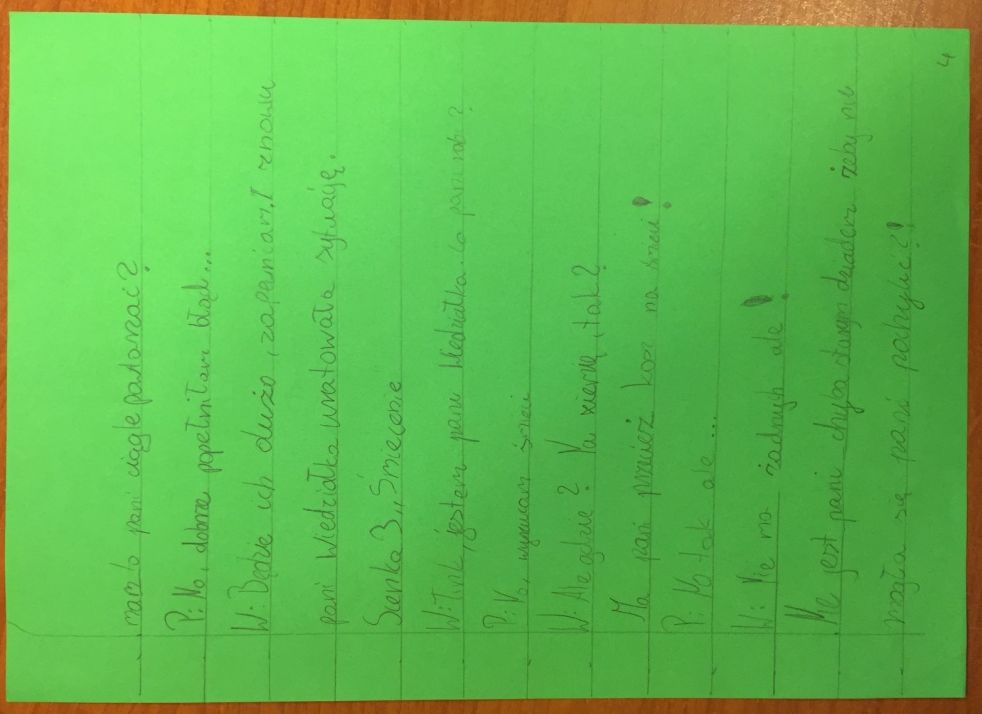 mam to pani ciągle patarzać?
P: No, dobrze popełniłam błąd...
W: Będzie ich dużo, zapewniam. I znowu
pani Wiedziałka uratowała sytuację.
Scenka 3 „Śmiecenie
W: jestem pani Wiedziałka. Co pani robi?
P: No, wyrzucam śmieci
W: Ale gdzie? Na ziemię, tak?
Ma pani przecież kosz na śmieci!
P: No tak ale...
W: Nie ma żadnych ale!
Nie jest pani chyba starym dziadem żeby nie
mogła się pani pochylić?!
4